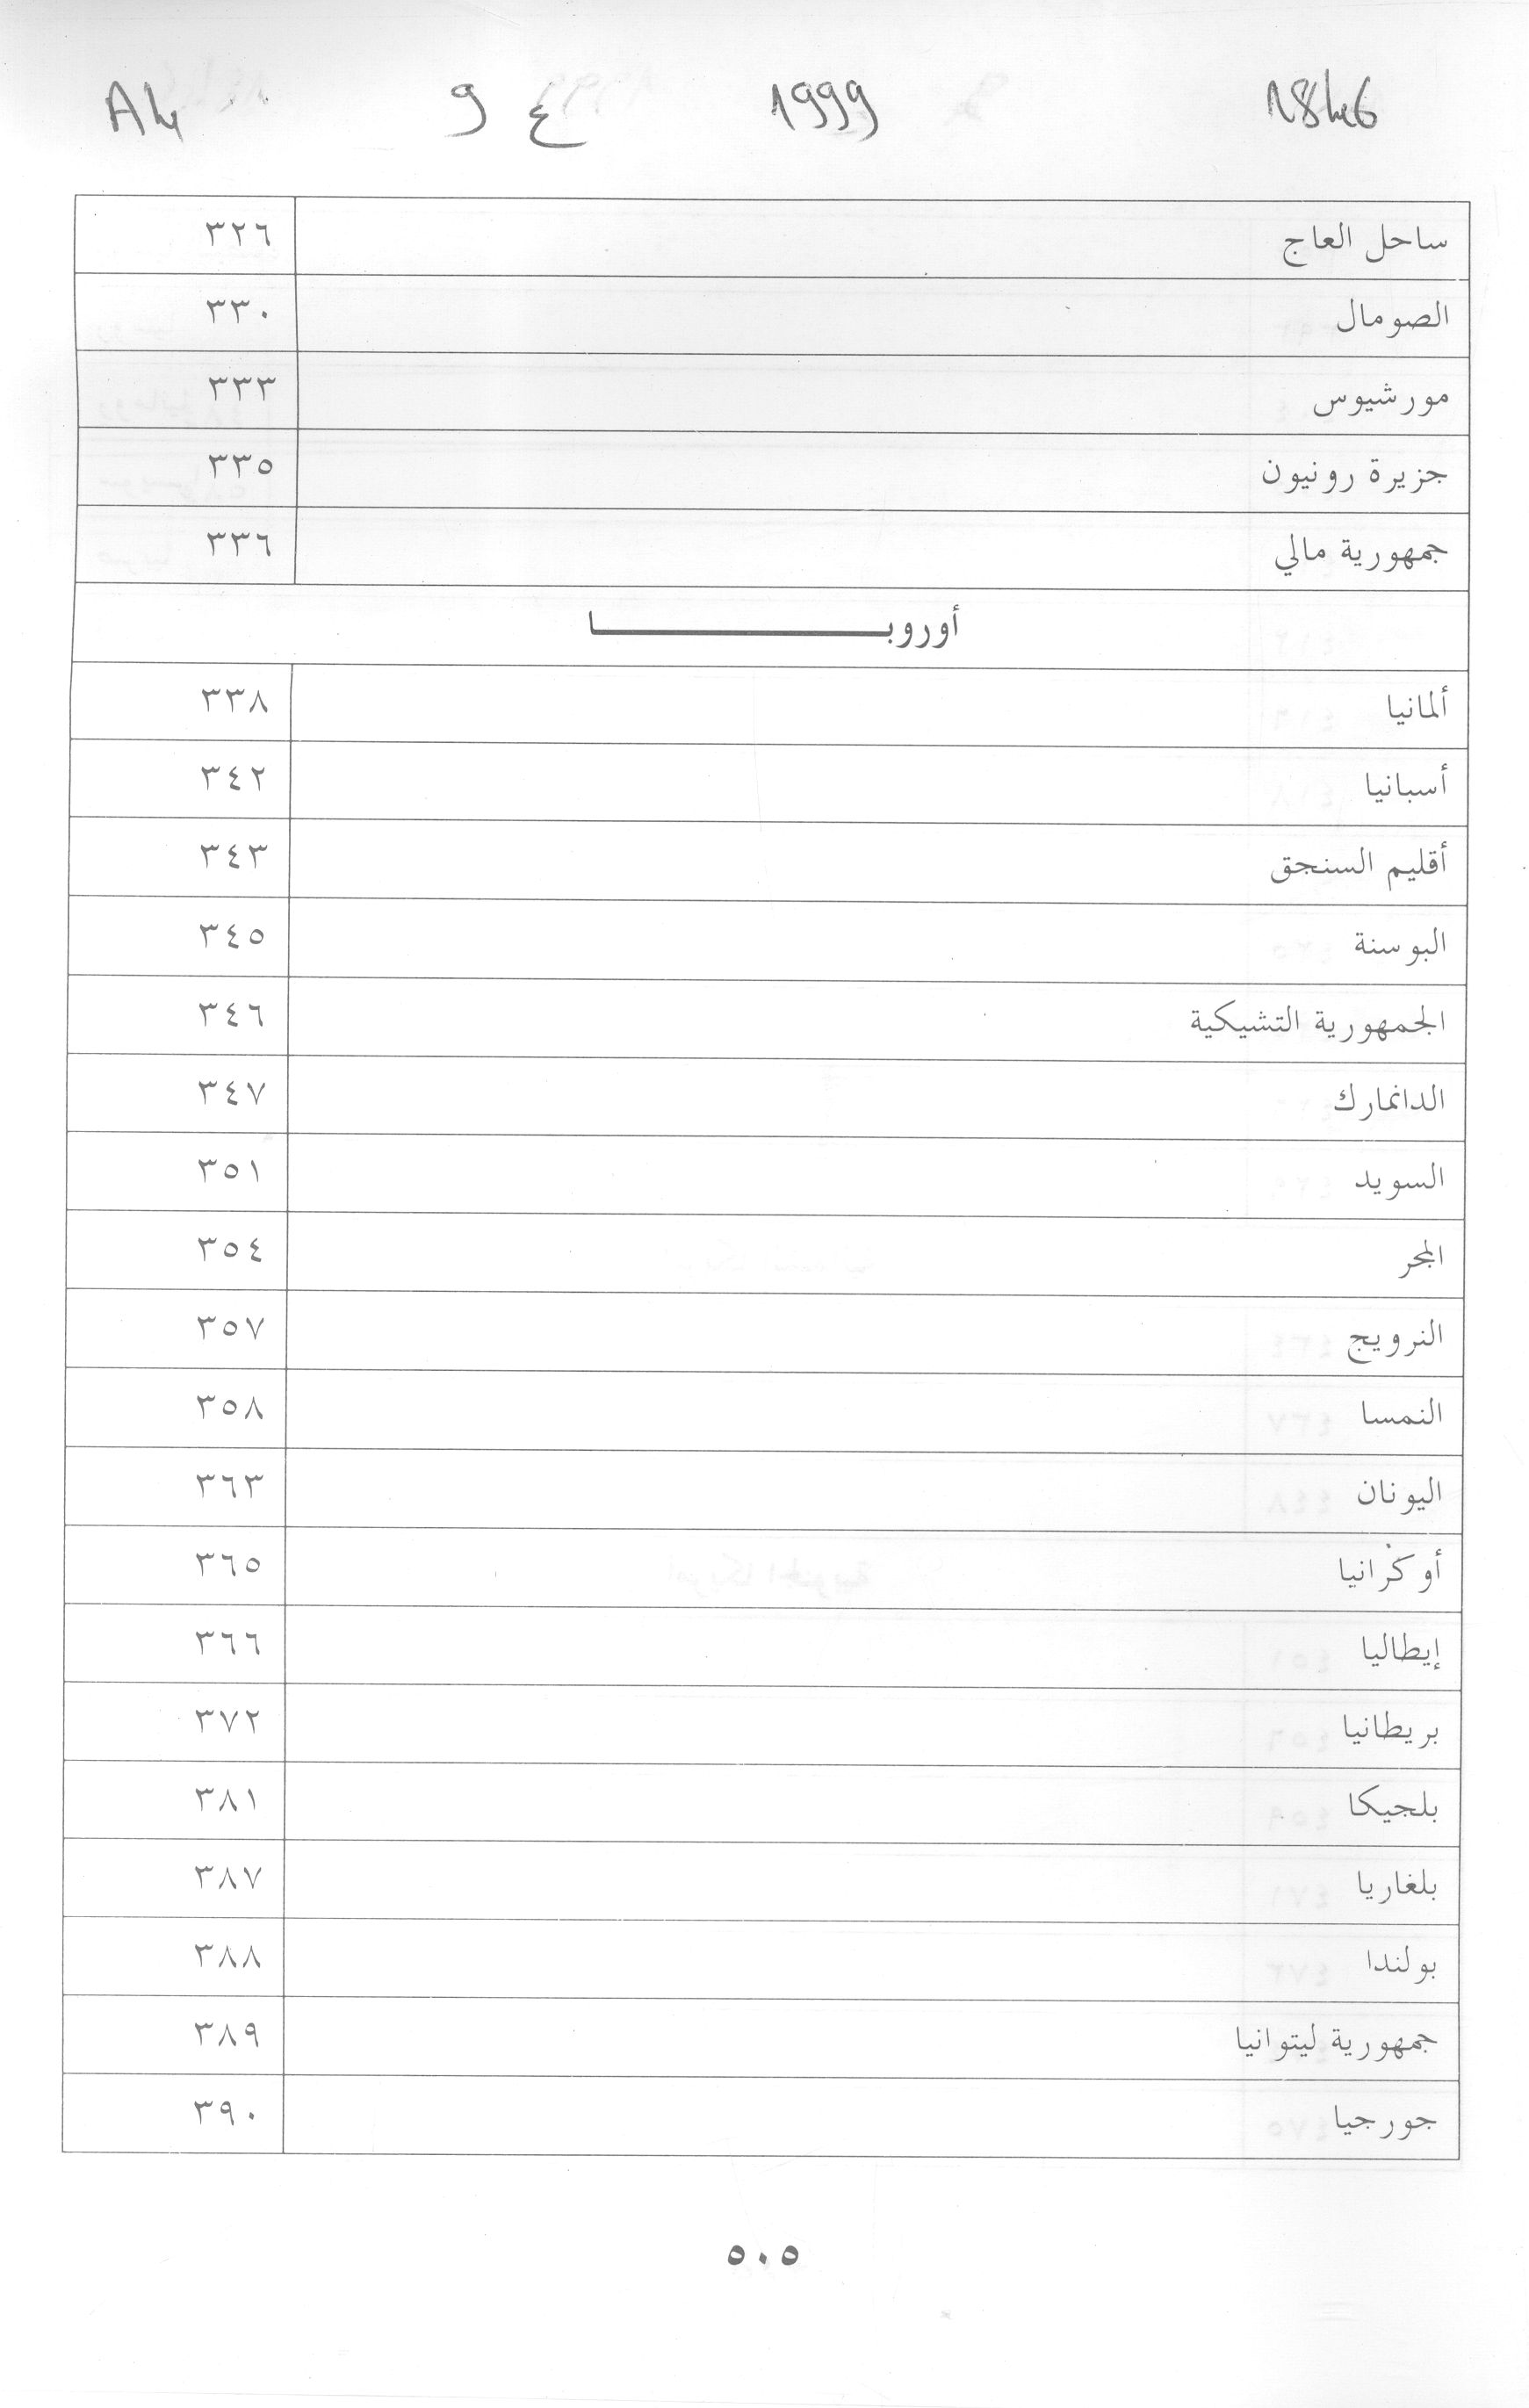 A4 9 ع 1999 1846
ساحل العاج ٣٢٦
الصومال ٣٣٠
مورشيوس ٣٣٣
جزيرة رونيون ٣٣٥
جمهورية مالي ٣٣٦
أوروبـــــــا
ألمانيا ٣٣٨
أسبانيا ٣٤٢
أقليم السنجق ٣٤٣
البوسنة ٣٤٥
الجمهورية التشيكية ٣٤٦
الدانمارك ٣٤٧
السويد ٣٥١
المجر ٣٥٤
النرويج ٣٥٧
النمسا ٣٥٨
اليونان ٣٦٣
أوكرانيا ٣٦٥
إيطاليا ٣٦٦
بريطانيا ٣٧٢
بلجيكا ٣٨١
بلغاريا ٣٨٧
بولندا ٣٨٨
جمهورية ليتوانيا ٣٨٩
جورجيا ٣٩٠
٥٠٥